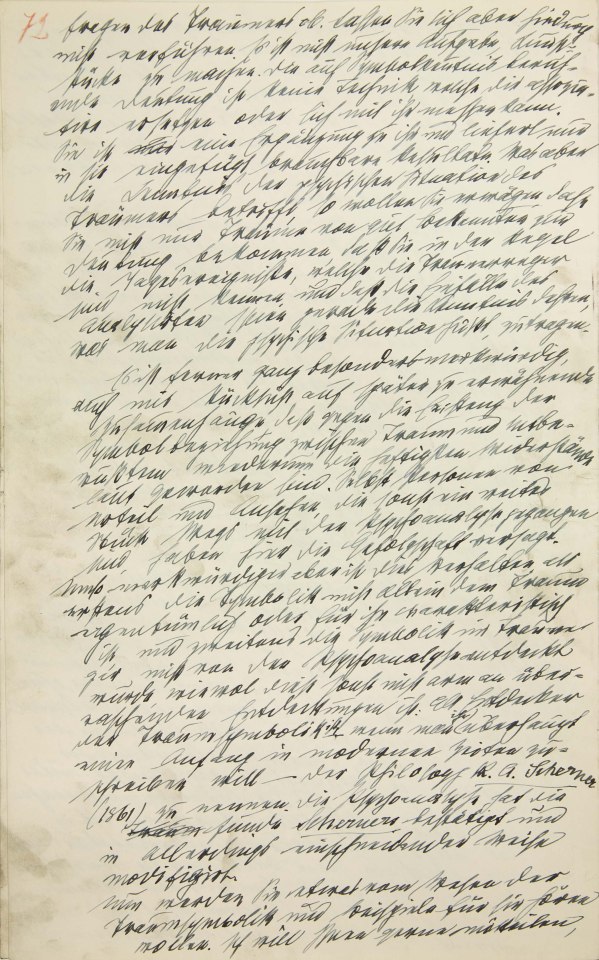 72
fragen des Träumers ab. Lassen Sie sich aber hiedurch
nicht verführen. Es ist nicht unsere Aufgabe Kunst-
stücke zu machen. Die auf Symbolkenntnis beruh-
ende Deutung ist keine Technik welche die assozia-
tive ersetzen oder sich mit ihr messen kann.
Sie ist eine Ergänzung zu ihr und liefert nur
in sie eingefügt brauchbare Resultate. Was aber
die Kenntnis der psychischen Situation des
Träumers betrifft, so wollen Sie erwägen daß
Sie nicht nur Träume von gut bekannten zur
Deutung bekommen, daß Sie in der Regel
die Tagesereignisse, welche die Traumerreger
sind nicht kennen, und daß die Einfälle des
Analysirten Ihnen gerade die Kenntnis dessen,
was man die psychische Situation heißt, zutragen.
Es ist ferner ganz besonders merkwürdig,
auch mit Rücksicht auf später zu erwähnende
Zusammenhänge, daß gegen die Existenz der
Symbolbeziehung zwischen Traum und Unbe-
wußtem wiederum die heftigsten Widerstände
laut geworden sind. Selbst Personen von
Urteil und Ansehen, die sonst ein weites
Stück Wegs mit der Psychoanalyse gegangen
sind haben hier die Gefolgschaft versagt.
Umso merkwürdiger aber ist dies Verhalten als
erstens die Symbolik nicht allein dem Traum
eigentümlich oder für ihn charakteristisch
ist und zweitens die Symbolik im Traume
gar nicht von der Psychoanalyse entdeckt
wurde wiewol diese sonst nicht arm an über-
raschenden Entdeckungen ist. Als Entdecker
der Traumsymbolik ist wenn man ihr überhaupt
einen Anfang in modernen Zeiten zu-
schreiben will – der Philosoph K. A. Scherner
(1861) zu nennen. Die Psychoanalyse hat die
Funde Scherners bestätigt und
in allerdings einschneidender Weise
modifizirt.
Nun werden Sie etwas vom Wesen der
Traumsymbolik und Beispiele für sie hören
wollen. Ich will Ihnen gerne mitteilen,